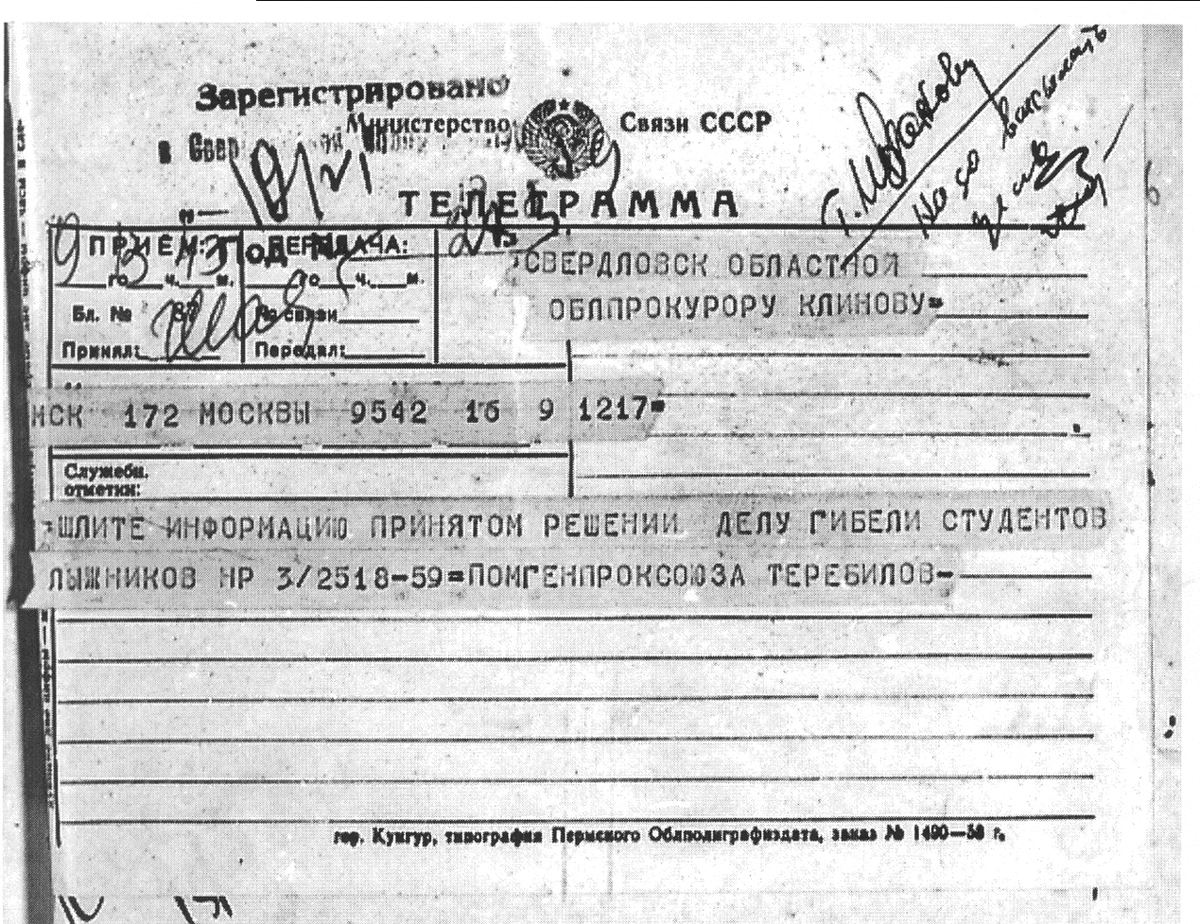 Зарегистрировано
Министерство Связи СССР
ТЕЛЕГРАММА
ПРИЕМ: ПЕРЕДАЧА:
9 го 13 ч. 13 м. го ч. м.
Бл. № № связи
Принял: Передал:
СВЕРДЛОВСК ОБЛАСТНОЙ
ОБЛПРОКУРОРУ КЛИНОВУ=
МСК 172 МОСКВЫ 9542 16 9 1217=
Служебн.
отметки:
=ШЛИТЕ ИНФОРМАЦИЮ ПРИНЯТОМ РЕШЕНИИ ДЕЛУ ГИБЕЛИ СТУДЕНТОВ
ЛЫЖНИКОВ НР 3/2518-59=ПОМГЕНПРОКСОЮЗА ТЕРЕБИЛОВ-
гор. Кунгур, типография Пермского Облполиграфиздата, заказ № 1490—58 г.